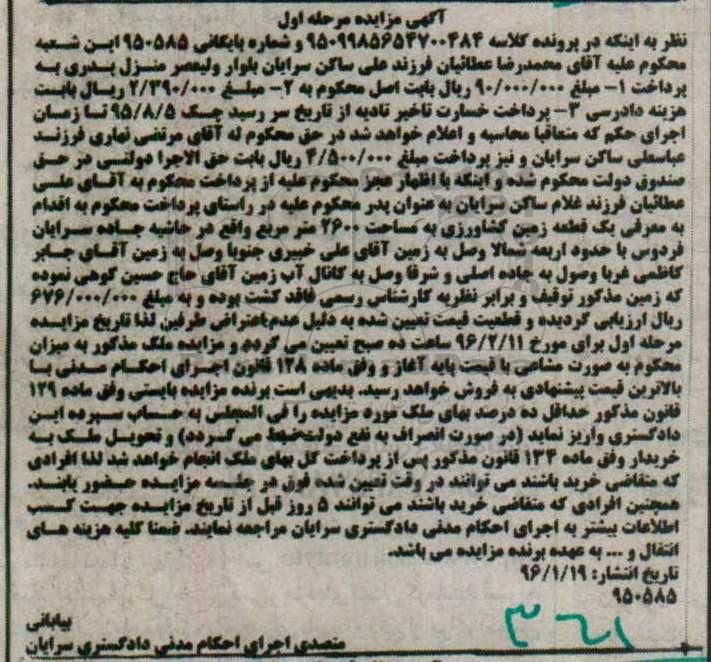 آگهی مزایده مرحله اول
نظر به اینکه در پرونده کلاسه ۹۵۰۹۹۸۵۶۵۴۷۰۰۴۸۴ و شماره بایگانی ۹۵۰۵۸۵ این شعبه
محکوم علیه آقای محمدرضا عطائیان فرزند علی ساکن سرایان بلوار ولیعصر منزل پدری به
پرداخت ۱- مبلغ ۹۰/۰۰۰/۰۰۰ ریال بابت اصل محکوم به ۲- مبلغ ۲/۳۹۰/۰۰۰ ریال بابت
هزینه دادرسی ۳- پرداخت خسارت تاخیر تادیه از تاریخ سر رسید چک ۹۵/۸/۵ تا زمان
اجرای حکم که متعاقبا محاسبه و اعلام خواهد شد در حق محکوم له آقای مرتضی نهاری فرزند
عباسعلی ساکن سرایان و نیز پرداخت مبلغ ۴/۵۰۰/۰۰۰ ریال بابت حق الاجرا دولتی در حق
صندوق دولت محکوم شده و اینکه با اظهار عجز محکوم علیه از پرداخت محکوم به آقای علی
عطائیان فرزند غلام ساکن سرایان به عنوان پدر محکوم علیه در راستای پرداخت محکوم به اقدام
به معرفی یک قطعه زمین کشاورزی به مساحت ۲۶۰۰ متر مربع واقع در حاشیه جاده سرایان
فردوس با حدود اربعه شمالا وصل به زمین آقای علی خبیری جنوبا وصل به زمین آقای جابر
کاظمی غربا وصول به جاده اصلی و شرقا وصل به کانال آب زمین آقای حاج حسین کوهی نموده
که زمین مذکور توقیف و برابر نظریه کارشناس رسمی فاقد کشت بوده و به مبلغ ۶۷۶/۰۰۰/۰۰۰
ریال ارزیابی گردیده و قطعیت قیمت تعیین شده به دلیل عدم اعتراض طرفین لذا تاریخ مزایده
مرحله اول برای مورخ ۹۶/۲/۱۱ ساعت ده صبح تعیین می گردد و مزایده ملک مذکور به میزان
محکوم به صورت مشاعی با قیمت پایه آغاز و وفق ماده ۱۲۸ قانون اجرای احکام مدنی با
بالاترین قیمت پیشنهادی به فروش خواهد رسید. بدیهی است برنده مزایده بایستی وفق ماده ۱۲۹
قانون مذکور حداقل ده درصد بهای ملک مورد مزایده را فی المجلس به حساب سپرده این
دادگستری واریز نماید (در صورت انصراف به نفع دولت ضبط می گردد) و تحویل ملک به
خریدار وفق ماده ۱۳۴ قانون مذکور پس از پرداخت کل بهای ملک انجام خواهد شد لذا افرادی
که متقاضی خرید باشند می توانند در وقت تعیین شده فوق در جلسه مزایده حضور یابند.
همچنین افرادی که متقاضی خرید باشند می توانند ۵ روز قبل از تاریخ مزایده جهت کسب
اطلاعات بیشتر به اجرای احکام مدنی دادگستری سرایان مراجعه نمایند. ضمنا کلیه هزینه های
انتقال و ... به عهده برنده مزایده می باشد.
تاریخ انتشار: ۹۶/۱/۱۹
۹۵۰۵۸۵
بیابانی
متصدی اجرای احکام مدنی دادگستری سرایان